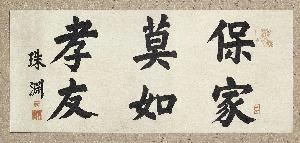 保家
莫如
孝友
珠淵